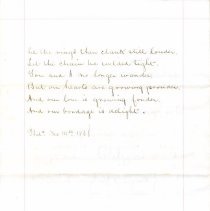 Let the magi then chant still louder
Let the chain be welded tight.
You and I no longer wander
But our hearts are growing prouder
And our love is growing fonder
And our bondage is delight.
Dec 10th